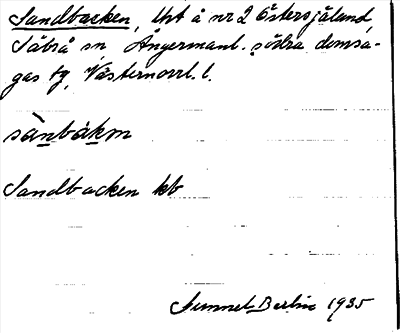 Sandbacken, lht å nr 2 Östersjåland,
Säbrå sn, Ångermanl. södra domsa-
gas tg, Västernorrl. l.
sànbákm
Sandbacken kb
Berlin 1935